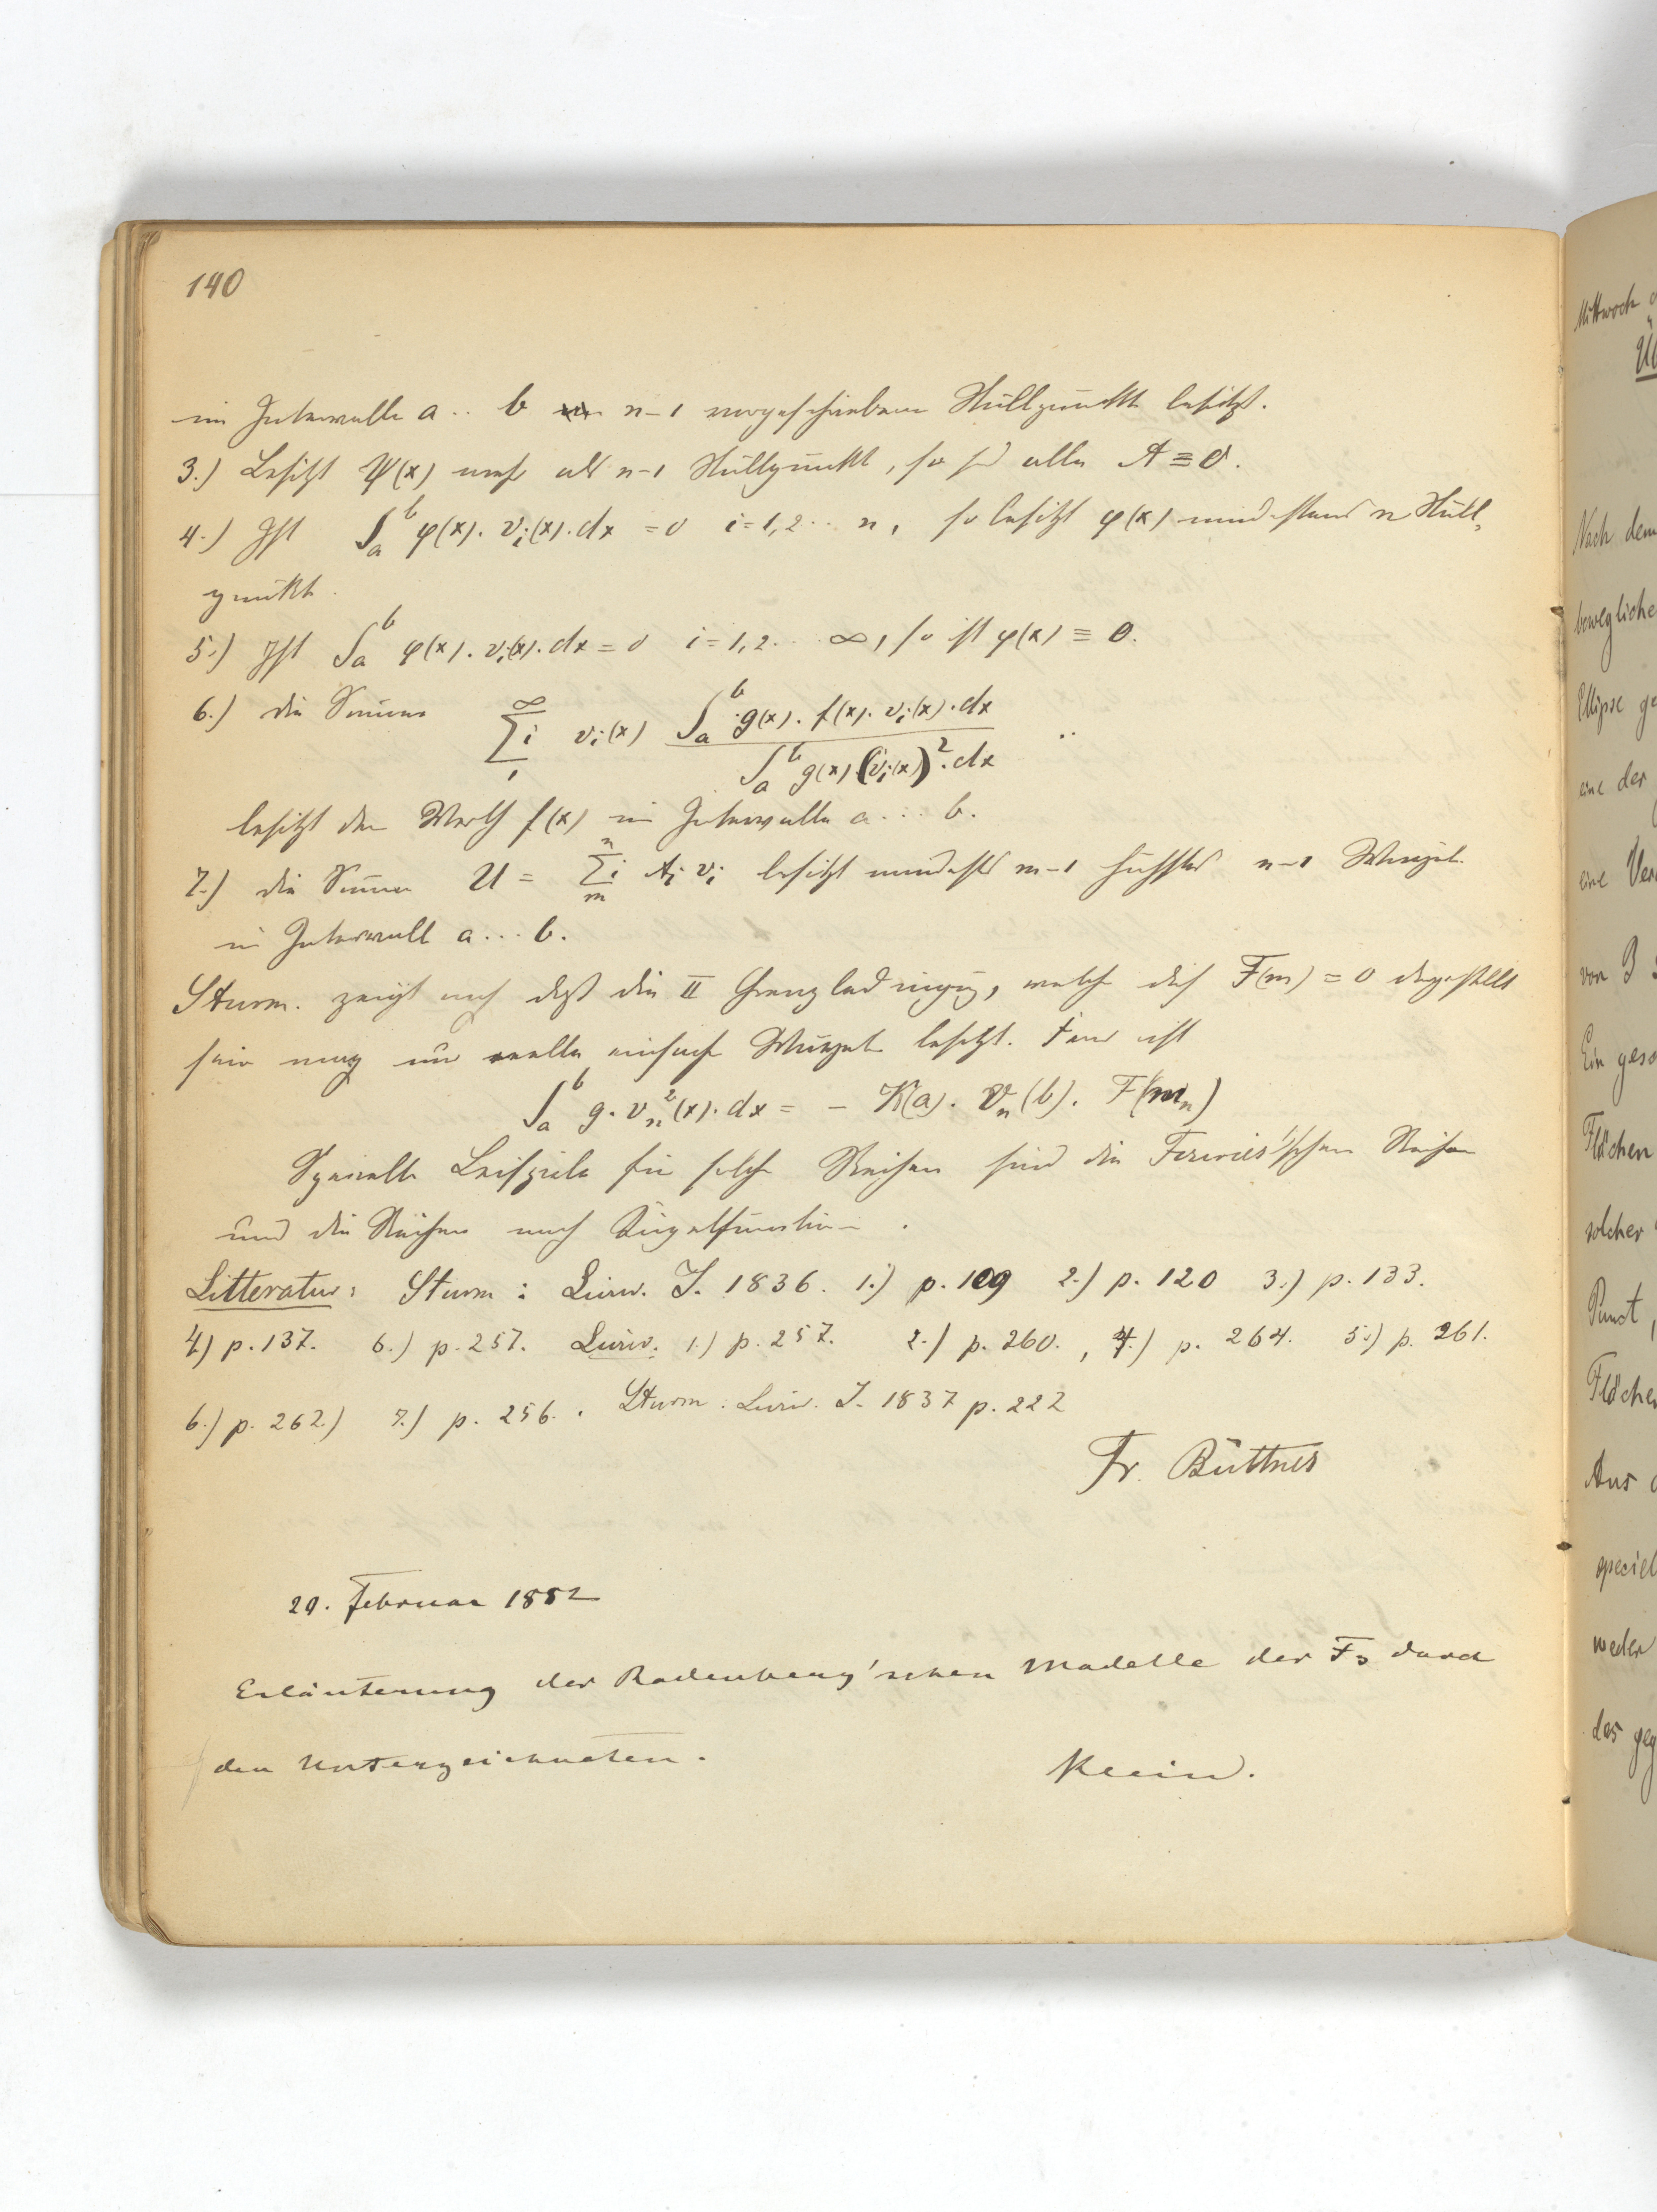 140
im Intervalle a .. b n-1 vorgeschriebene Nullpunkte besitzt.
3.) Besitzt ψ(x) mehr als n-1 Nullpunkte, so sd alle A ≡ 0.
4.) Ist ∫_a^b φ(x). v_i(x).dx = 0 i=1,2 .. n, so besitzt φ(x) mindestens n Null-
punkte.
5.) Ist ∫_a^b φ(x). v_i(x). dx = 0 i = 1,2 ... ∞, so ist φ(x) ≡ 0.
6.) die Summe Σ_1^∞ i v_i(x) ∫_a^b g(x). f(x). v_i(x).dx / ∫_a^b g(x).(v_i(x))^2.dx
besitzt den Werth f(x) im Intervalle a ... b.
7.) die Summe U = Σ_m^n i A_i v_i besitzt mindestens m-1 höchstens n-1 Wurzeln
im Intervall a ... b.
Sturm. zeigt noch daß die II Grenzbedingung, welche durch F(m) = 0 dargestellt
sein mag nur reelle einfache Wurzeln besitzt. Ferner ist
∫_a^b g. v_n^2(x). dx = - K(a). V_n(b). F(m_n)
Specielle Beispiele für solche Reihen sind die Fourier'schen Reihen
und die Reihen nach Kugelfunctionen.
Litteratur: Sturm: Liouv. J. 1836. 1.) p. 109 2.) p. 120 3.) p. 133.
4) p. 137. 6.) p. 257. Liouv. 1.) p. 257. 2.) p. 260. , 4.) p. 264. 5.) p. 261.
6.) p. 262.) 7.) p. 256. Sturm: Liouv. J. 1837 p. 222
Fr. Büttner
20. Februar 1882
Erläuterung der Rodenberg'schen Modelle der F_3 durch
den Unterzeichneten. Klein.
Mittwoch
Nach dem
bewegliche
Ellipse
eine der
eine
von
Ein
Flächen
solcher
Punct,
Fläche
Aus
speciel
weder
des